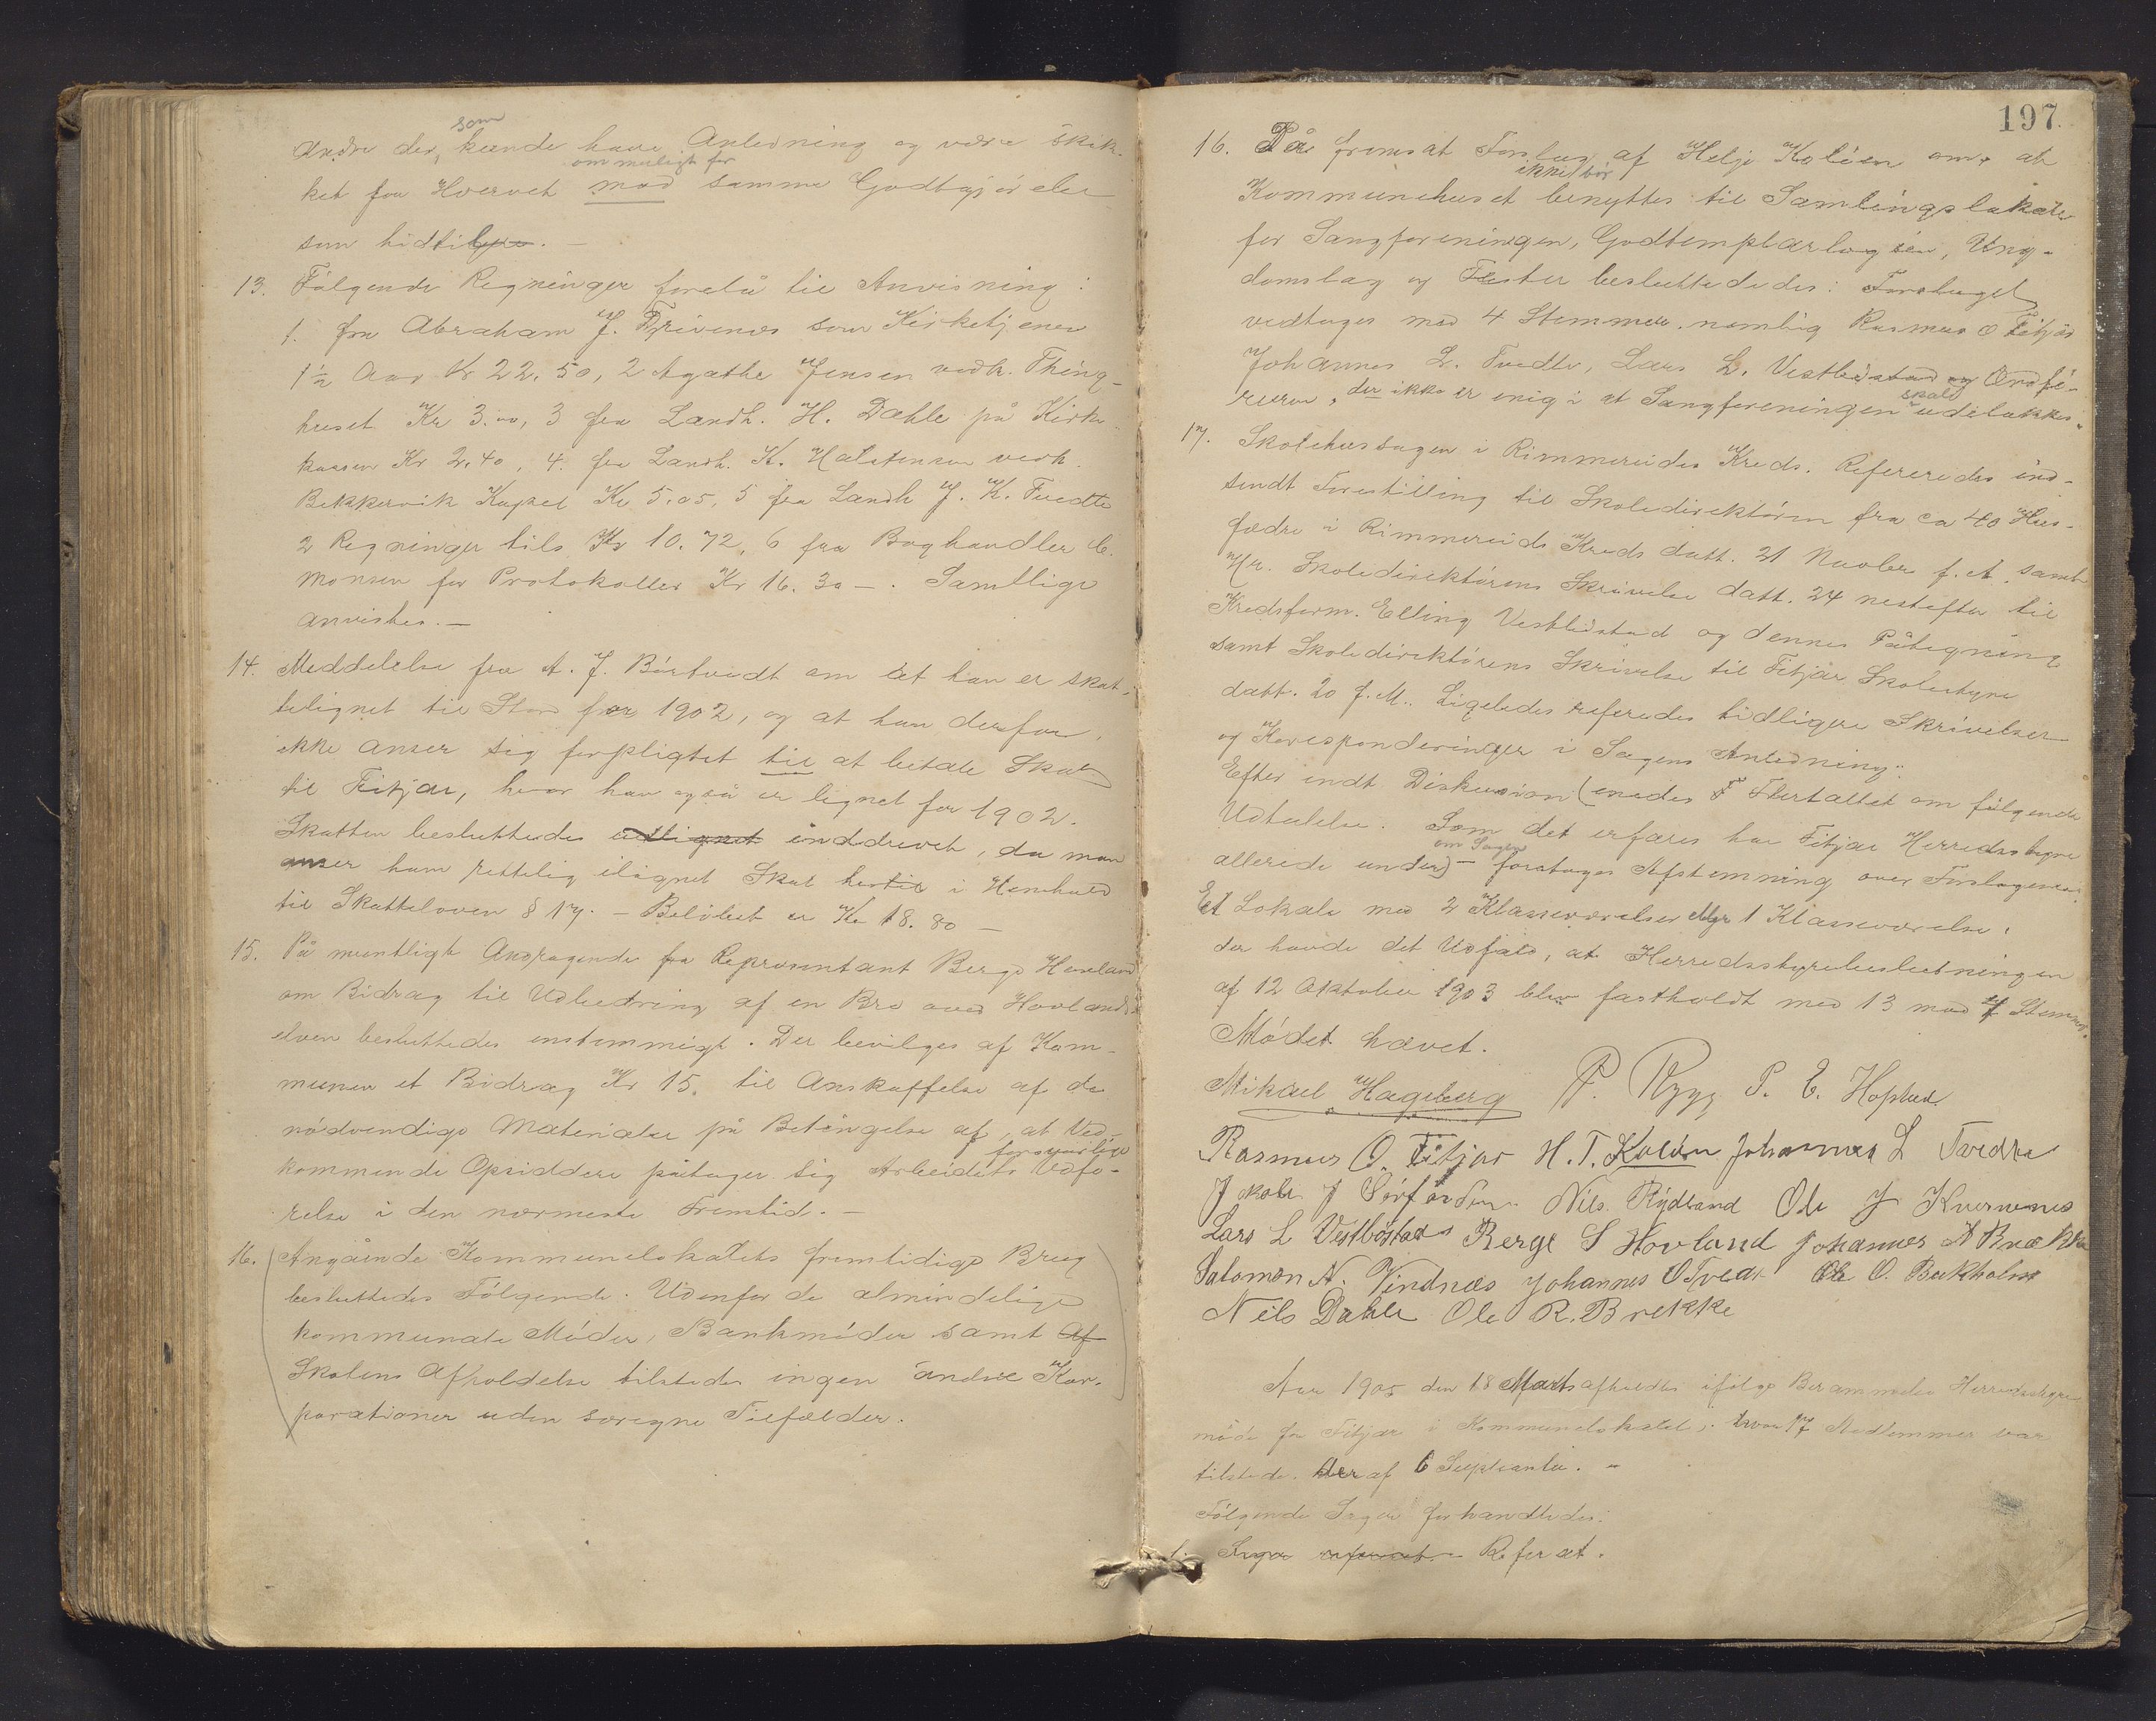 som
andre der kunde have Anledning og være skik-
om muligt for
ket for Hvervet mod samme Godtgjörelse
som hidtil.
13. Fölgende Regninger forelå til Anvisning:
1. fra Abraham J. som Kirketjener
1½ Aar Kr 22.50, 2 Agathe Jensen vedk. Thing-
huset Kr 3.00, 3 fra Landh. H. Dahle på Kirke-
kassen Kr 2.40, 4. fra Landh. K. Halstensen vedk.
Bekkervik Kapel Kr 5.05, 5 fra Landh J. K. Tvedte
2 Regninger tils Kr 10.72, 6 fra Boghandler C.
Monsen for Protokoller Kr 16.30 —. Samtlige
anvistes. —
14. Meddelelse fra A. J. Börtvedt om at han er skat-
telignet til Stord for 1902, og at han derfor
ikke anser sig forpligtet til at betale Skat
til Fitjar, hvor han også er lignet for 1902.
Skatten besluttedes udlignet inddrevet, da man
anser ham rettelig ilignet Skat hertil i Henhold
til Skatteloven § 17. — Belöbet er Kr 18.80 —
15. På mundtligt Andragende fra Repræsentant Berge Hovland
om Bidrag til Udbedring af en Bro over Hovlands-
elven besluttedes enstemmigt. Der bevilges af Kom-
munen et Bidrag Kr 15. til Anskaffelse af de
nödvendige Materialer på Betingelse af, at Ved-
forsvarlige
kommende Opsiddere påtager sig Arbeidets Udfö-
relse i den nærmeste Fremtid. —
16. Angående Kommunelokalets fremtidige Brug
besluttedes Fölgende. Udenfor de almindelige
kommunale Möder, Bankmöder samt af
Skolens Afholdelse tilstedes ingen andre Kor-
porationer uden særegne Tilfælder.
197.
16. På fremsat Forslag af Helje Koløen om at
ikke bör
Kommunehuset benyttes til Samlingslokale
for Sangforeningen, Godtemplarlogsen, Ung-
domslag og Fester besluttededes: Forslaget
vedtages med 4 Stemmer. nemlig Rasmus O Fitjar
Johannes L. Tvedte, Lars L. Vestböstad og Ordfö-
skal
reren, der ikke er enig i at Sangforeningen udelukkes.
17. Skolehussagen i Rimmereides Kreds. Refereredes ind-
sendt Forestilling til Skoledirektören fra ca 40 Hus-
fædre i Rimmereids Kreds datt. 21 Novbr f. A. samt
Hr. Skoledirektörens Skrivelse datt. 24 nestefter til
Kredsform. Elling Vestböstad og dennes Påtegning
samt Skoledirektörens Skrivelse til Fitjar Skolestyre
datt. 20 f. M.. Ligeledes referedes tidligere Skrivelser
og Korresponderinger i Sagens Anledning.
Efter endt Diskusion (enedes F Flertallet om fölgende
Udtalelse. Som det erfares har Fitjar Herredsstyre
om Sagen
allerede under) — foretages Afstemning over Forslagene:
Et Lokale med 2 Klasseværelser eller 1 Klasseværelse,
der havde det Udfald, at Herredsstyrebeslutningen
af 12 Oktober 1903 blev fastholdt med 13 mod 4 Stemmer.
Mödet hævet.
Mikael Hageberg P. Rygg P. E. Hopland
Rasmus O. Fitjar H. T. Koløen Johannes L Tvedte
Jakob J Sörfonden Nils Rydland Ole J Kvernenes
Lars L Vestböstad Berge S Hovland Johannes A Brække
Salomon N. Vindnæs Johannes O Tvedt Ole O. Bukholm
Nils Dahle Ole R. Brekke
Aar 1905 den 18 Marts afholdtes ifölge Berammelse Herredsstyre-
möde for Fitjar i Kommunelokalet, hvor 17 Medlemmer var
tilstede. deraf 6 Supleanter. —
Fölgende Sager forhandledes:
1. Sager referert. Referat.